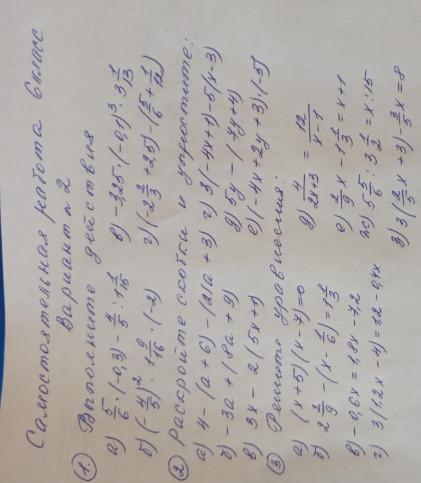 Самостоятельная работа 6 класс
Вариант №2
1. Выполните действия
а) 5/6 · (-0,3) - 4/5 : 1 1/15   в) -3,25 · (-0,1)³ : 3 1/13
б) (-4/5)² : 1 9/16 · (-2)   г) (-2 2/3 + 2,5) - (5/6 + 1/12)
2. Раскройте скобки и упростите:
а) 4 - (a + 6) - (21a + 3)   г) 3(-4x+1) - 5(x-3)
б) -3a + (8a + 9)   д) 5y - (7y + 4)
в) 3x - 2(5x + 1)   е) (-4x + 2y + 3) · (-5)
3. Решите уравнения:
а) (x+5)(x-7) = 0   д) 4/(2x+3) = 12/(x-1)
б) 2 2/9 - (x - 1/6) = 1 1/3   е) 2/9 x - 1 1/3 = x + 1
в) -0,6x = 1,8x - 7,2   ж) 5 5/6 : 3 1/2 = x : 15
г) 3(1,2x - 4) = 1,2 - 0,4x   з) 3(2/5 x + 3) - 3/5 x = 8